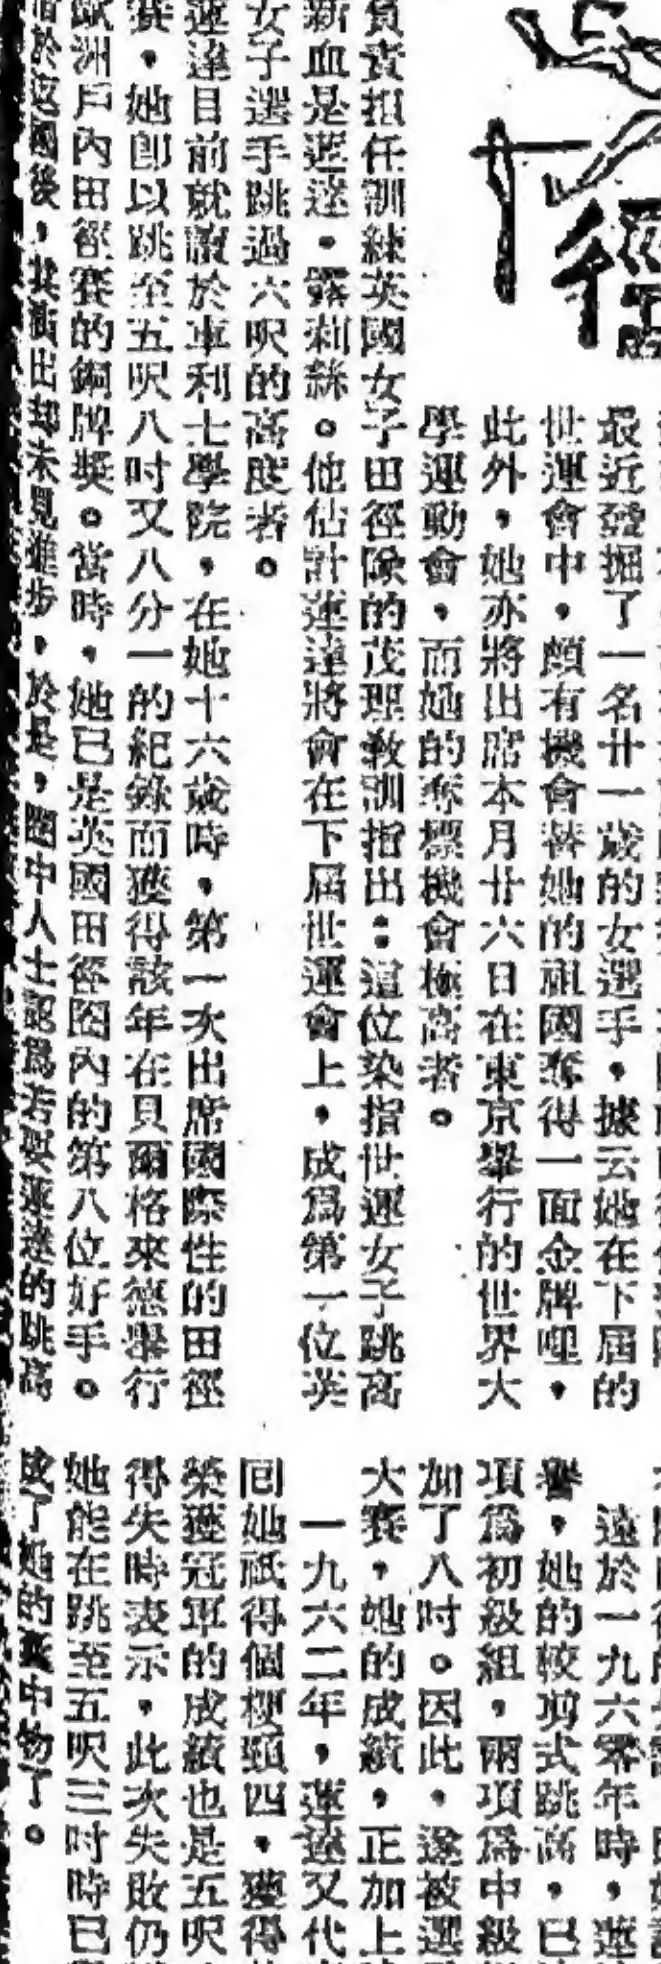 徑
最近發掘了一名廿一歲的女選手,據云她在下屆的
世運會中,頗有機會替她的祖國奪得一面金牌哩,
此外,她亦將出席本月廿六日在東京舉行的世界大
學運動會,而她的奪標機會極高者。
負責担任訓練英國女子田徑隊的茂理教訓指出:這位染指世運女子跳高
新血是蓮達・露絲。他估計蓮達將會在下屆世運會上,成爲第一位英
女子選手跳過六呎的高度者。
蓮達目前就讀於車利士學院,在她十六歲時,第一次出席國際性的田徑
賽,她卽以跳至五呎八吋又八分一的紀錄而獲得該年在貝爾格來德舉行
歐洲戶內田徑賽的銅牌獎。當時,她已是英國田徑圈內的第八位好手。
後,其演出却未見進步,於是,圈中人士認爲若要蓮達的跳高
遠於一九六零年時,蓮
譽,她的較剪式跳高,已
項爲初級組,兩項爲中級
加了八吋。因此,遂被選
大賽,她的成績,正加上
一九六二年,蓮達又代
回她祇得個梗頸四,獲得
榮獲冠軍的成績也是五呎
得失時表示,此次失敗仍
她能在跳至五呎三吋時已
成了她的囊中物了。